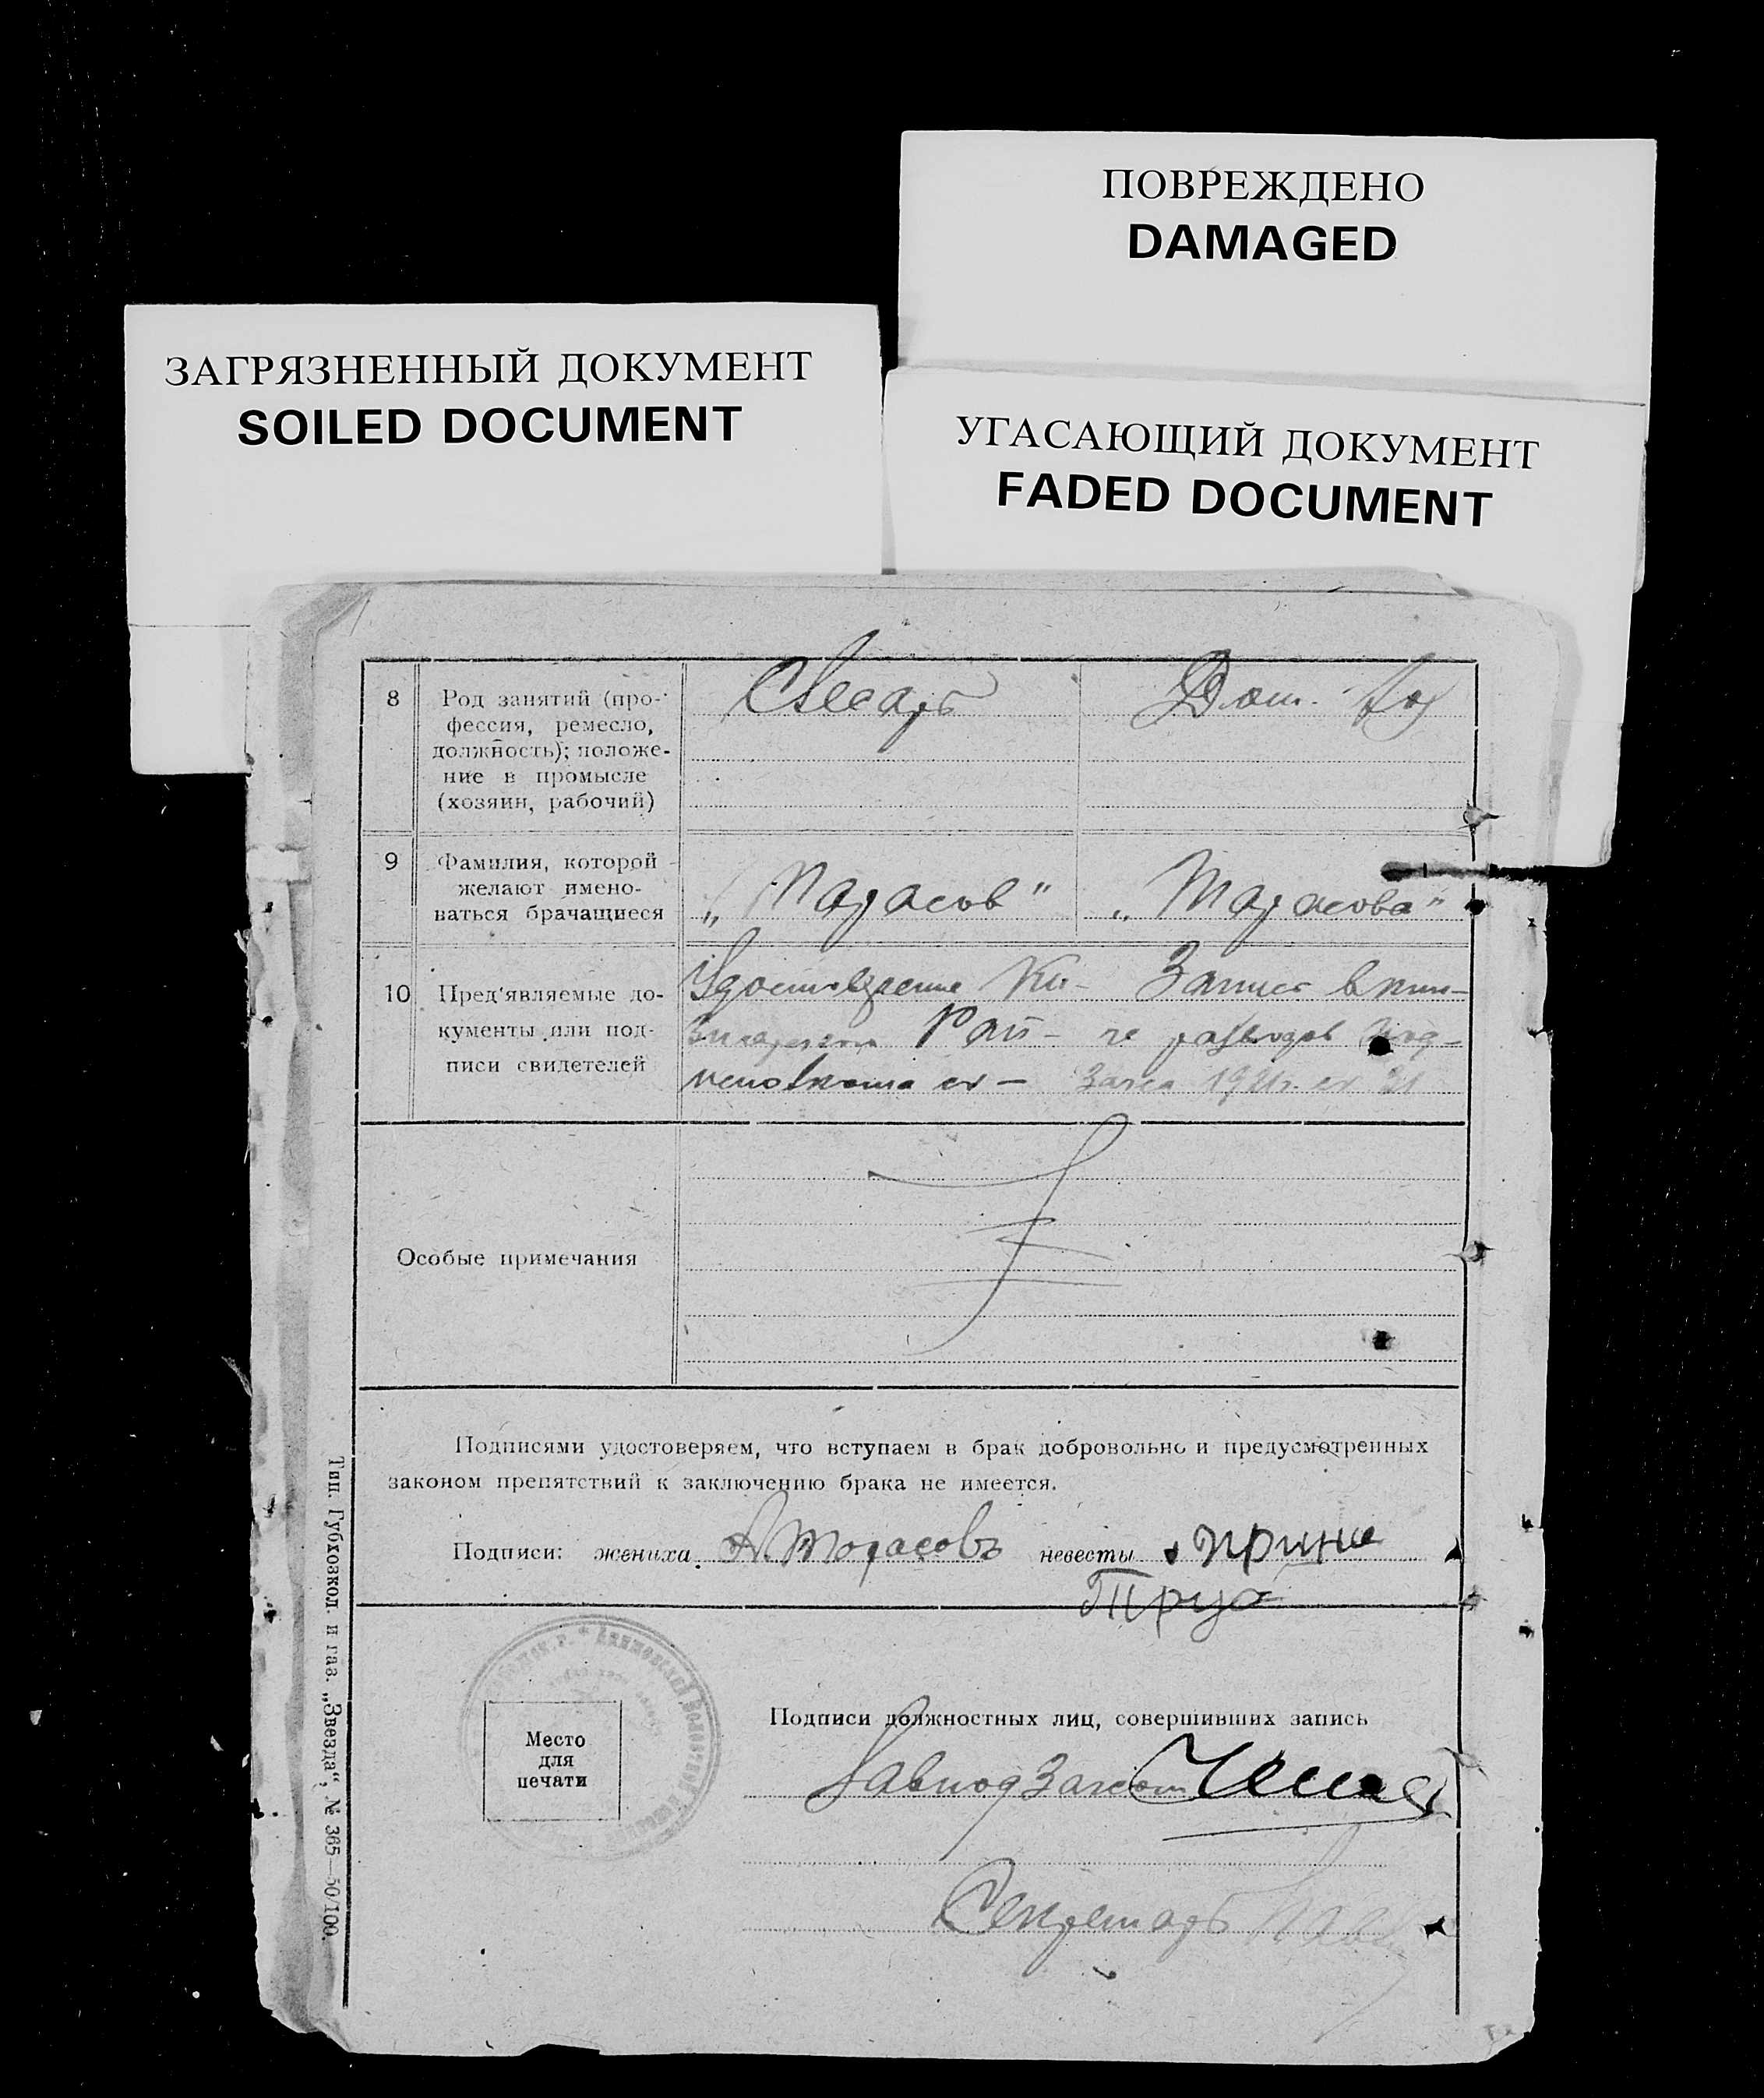 ПОВРЕЖДЕНО
DAMAGED
ЗАГРЯЗНЕННЫЙ ДОКУМЕНТ
SOILED DOCUMENT
УГАСАЮЩИЙ ДОКУМЕНТ
FADED DOCUMENT
8
Род занятий (про-
фессия, ремесло,
должность); положе-
ние в промысле
(хозяин, рабочий)
Слесарь
Дом. Хоз
9
Фамилия, которой
желают имено-
ваться брачащиеся
„Тарасов“
„Тарасова“
10
Пред'являемые до-
кументы или под-
писи свидетелей
Удостоверение Ки- Запись в кни-
Рай- ге разводов Под-
исполкома от — Загса от 21
Особые примечания
Подписями удостоверяем, что вступаем в брак добровольно и предусмотренных
законом препятствий к заключению брака не имеется.
Подписи: жениха А. Тарасовъ невесты Ирина
Место
для
печати
Подписи должностных лиц, совершивших запись
Завподзагсом
Секретарь
Тип. Губхозкол. и газ. „Звезда“, № 365—50/100.